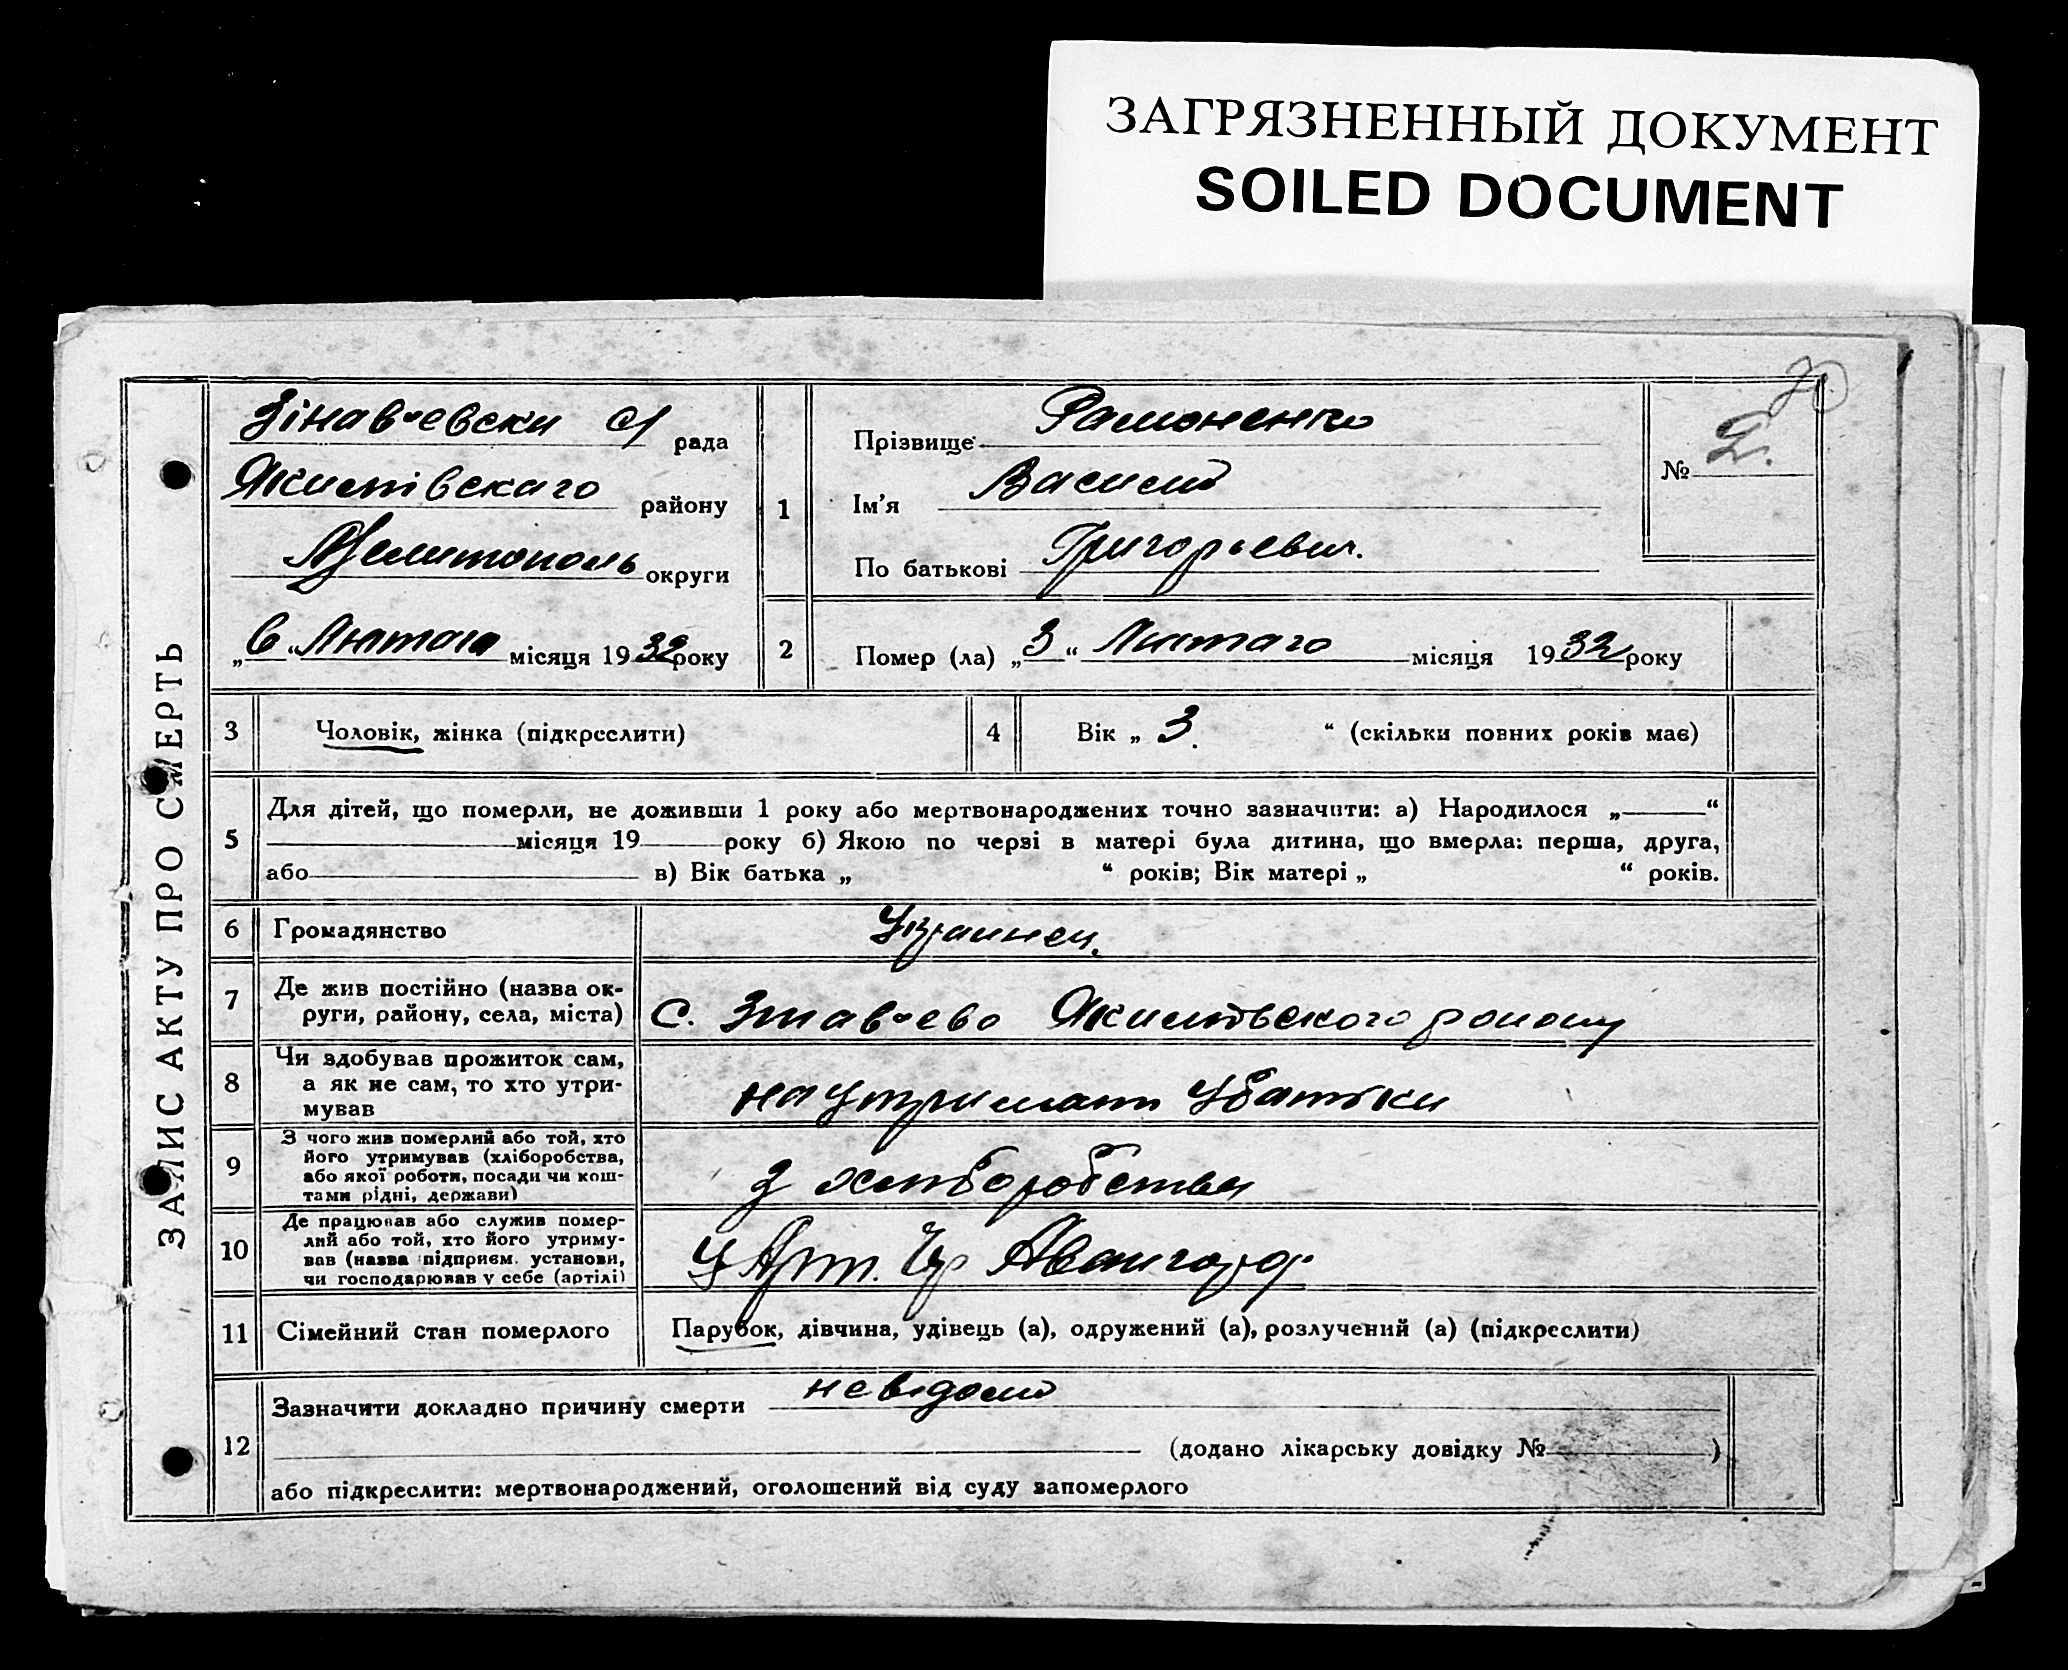 ЗАГРЯЗНЕННЫЙ ДОКУМЕНТ
SOILED DOCUMENT
ЗАПИС АКТУ ПРО СМЕРТЬ
рада
району
Мелитополь округи
„6“ Лютаго місяця 1932 року
1
Прізвище Рамоненко
Ім'я Василий
По батькові Григорьевич.
№ 2.
2 Помер (ла) „3“ Лютаго місяця 1932 року
3 Чоловік, жінка (підкреслити)
4 Вік „ 3. “ (скільки повних років має)
5
Для дітей, що померли, не доживши 1 року або мертвонароджених точно зазначити: а) Народилося „ “
місяця 19 року б) Якою по черзі в матері була дитина, що вмерла: перша, друга,
або в) Вік батька „ “ років; Вік матері „ “ років.
6 Громадянство Украинец.
7
Де жив постійно (назва ок-
руги, району, села, міста) с.
8
Чи здобував прожиток сам,
а як не сам, то хто утри-
мував
на
9
З чого жив померлий або той, хто
його утримував (хліборобства,
або якої роботи, посади чи кош-
тами рідні, держави)
з
10
Де працював або служив помер-
лий або той, хто його утриму-
вав (назва підприєм. установи,
чи господарював у себе (артілі)
У Арт. Авангард
11 Сімейний стан померлого Парубок, дівчина, удівець (а), одружений (а), розлучений (а) (підкреслити)
12
Зазначити докладно причину смерти
(додано лікарську довідку № )
або підкреслити: мертвонароджений, оголошений від суду запомерлого